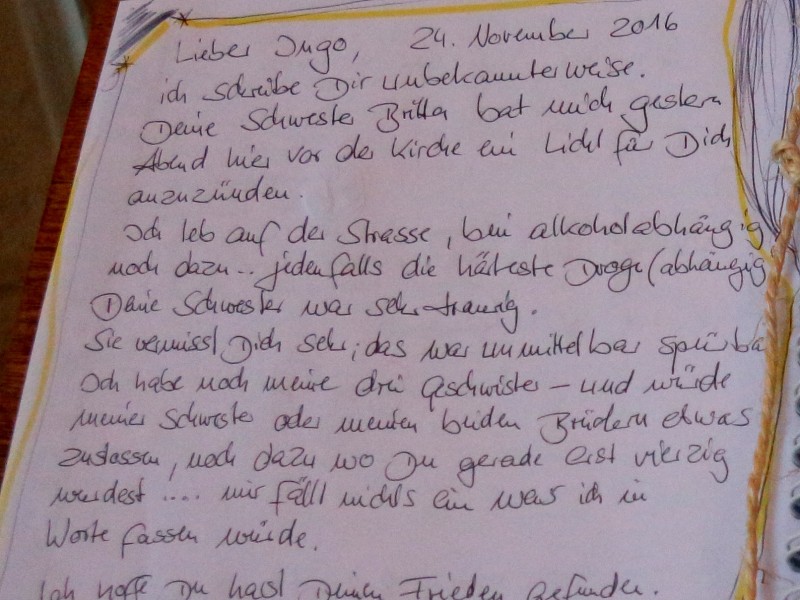 Lieber Ingo, 24. November 2016
ich schreibe Dir unbekannterweise.
Deine Schwester Britta bat mich gestern
Abend hier vor der Kirche ein Licht für Dich
anzuzünden.
Ich leb auf der Strasse, bin alkoholabhängig
noch dazu.. jedenfalls die härteste Droge (abhängig
Deine Schwester war sehr traurig.
Sie vermisst Dich sehr; das war unmittelbar spürba
Ich habe noch meine drei Geschwister – und würde
meiner Schwester oder meinen beiden Brüdern etwas
zustossen, noch dazu wo Du gerade erst vierzig
wurdest .... mir fällt nichts ein was ich in
Worte fassen würde.
Ich hoffe Du hast Deinen Frieden gefunden.